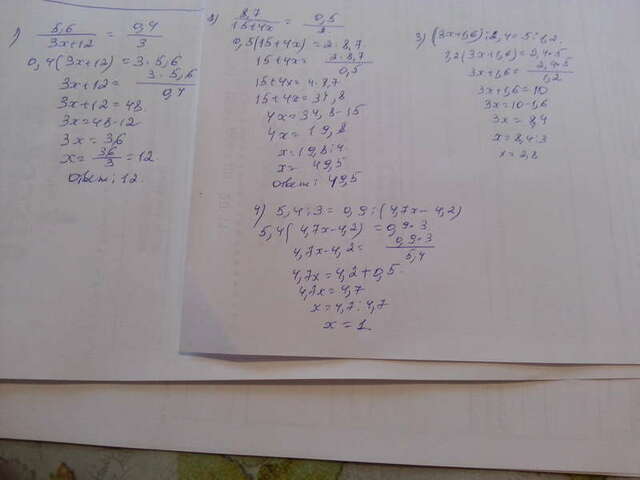 1) 5,6 / 3x+12 = 0,4 / 3
0,4(3x+12) = 3·5,6
3x+12 = 3·5,6 / 0,4
3x+12 = 48
3x = 48-12
3x = 36
x = 36/3 = 12
Ответ: 12.
2) 8,7 / 15+4x = 0,5 / 2
0,5(15+4x) = 2·8,7
15+4x = 2·8,7 / 0,5
15+4x = 4·8,7
15+4x = 34,8
4x = 34,8-15
4x = 19,8
x = 19,8:4
x = 49,5
Ответ: 49,5
3) (3x+1,6):2,4 = 5:1,2.
1,2(3x+1,6) = 2,4·5
3x+1,6 = 2,4·5 / 1,2
3x+1,6 = 10
3x = 10-1,6
3x = 8,4
x = 8,4:3
x = 2,8
4) 5,4:3 = 0,9:(4,7x-4,2)
5,4(4,7x-4,2) = 0,9·3
4,7x-4,2 = 0,9·3 / 5,4
4,7x = 4,2+0,5
4,7x = 4,7
x = 4,7:4,7
x = 1.